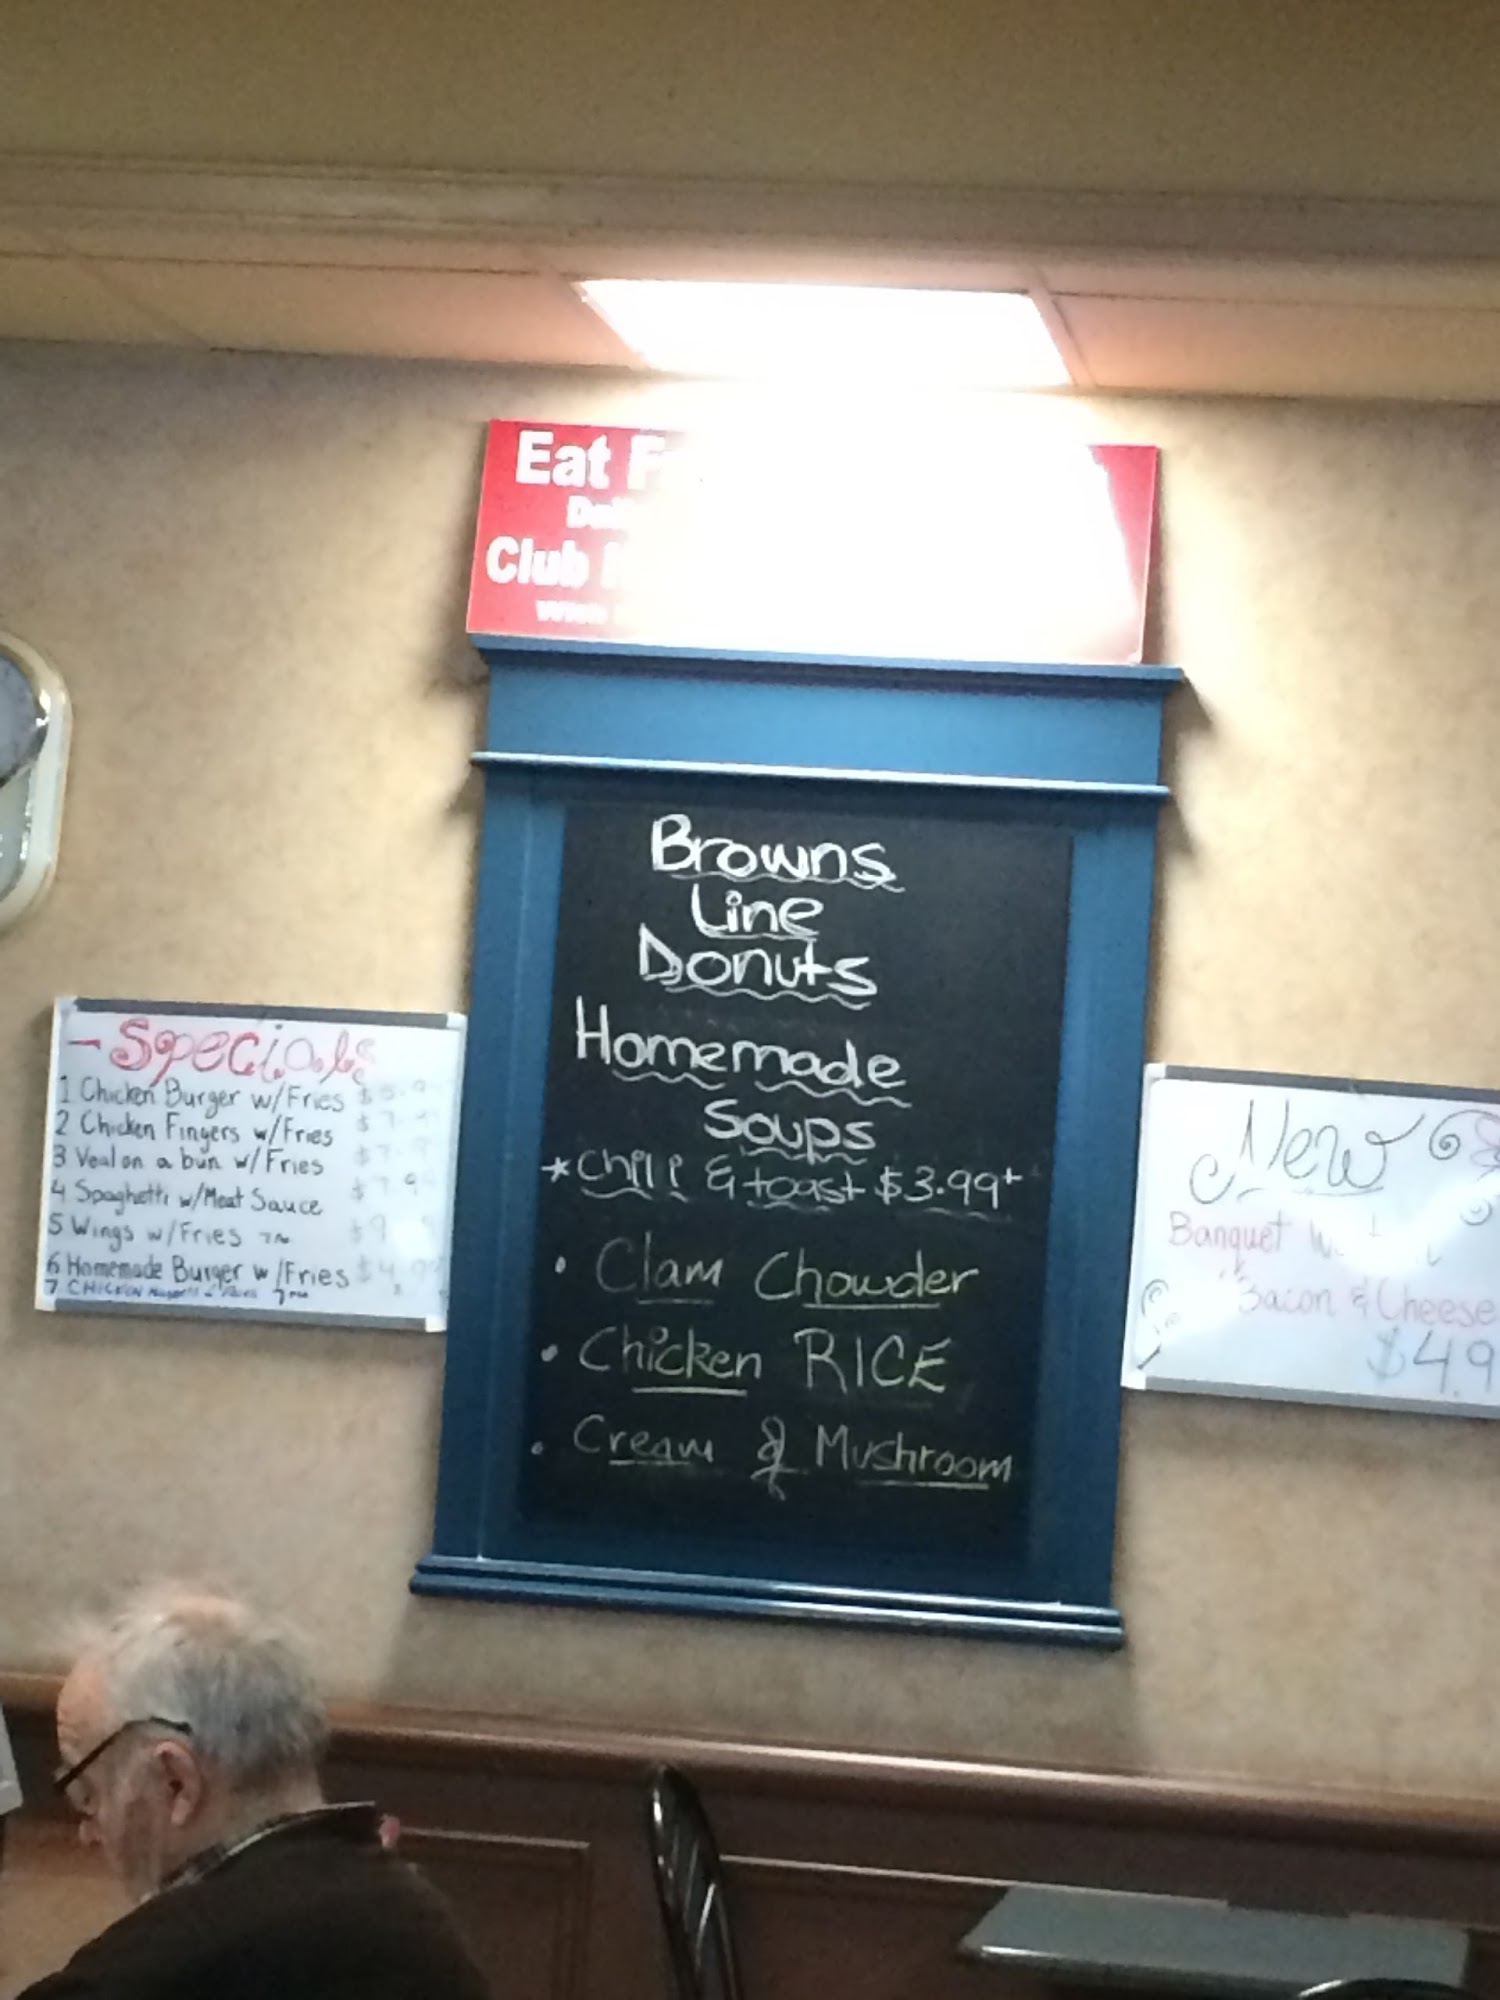 Eat
Club
Browns
Line
Donuts
Homemade
Soups
*Chili & toast $3.99+
• Clam Chowder
• Chicken RICE
• Cream of Mushroom
- Specials
1 Chicken Burger w/Fries
2 Chicken Fingers w/Fries
3 Veal on a bun w/Fries
4 Spaghetti w/Meat Sauce
5 Wings w/Fries
6 Homemade Burger w/Fries
7 CHICKEN
New
Banquet
Bacon & Cheese
$4.9